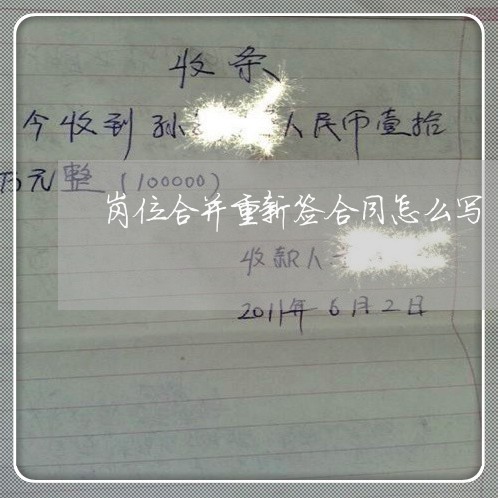 收条
今收到孙 人民币壹拾
万元整(100000)
岗位合并重新签合同怎么写
收款人
2011年6月2日